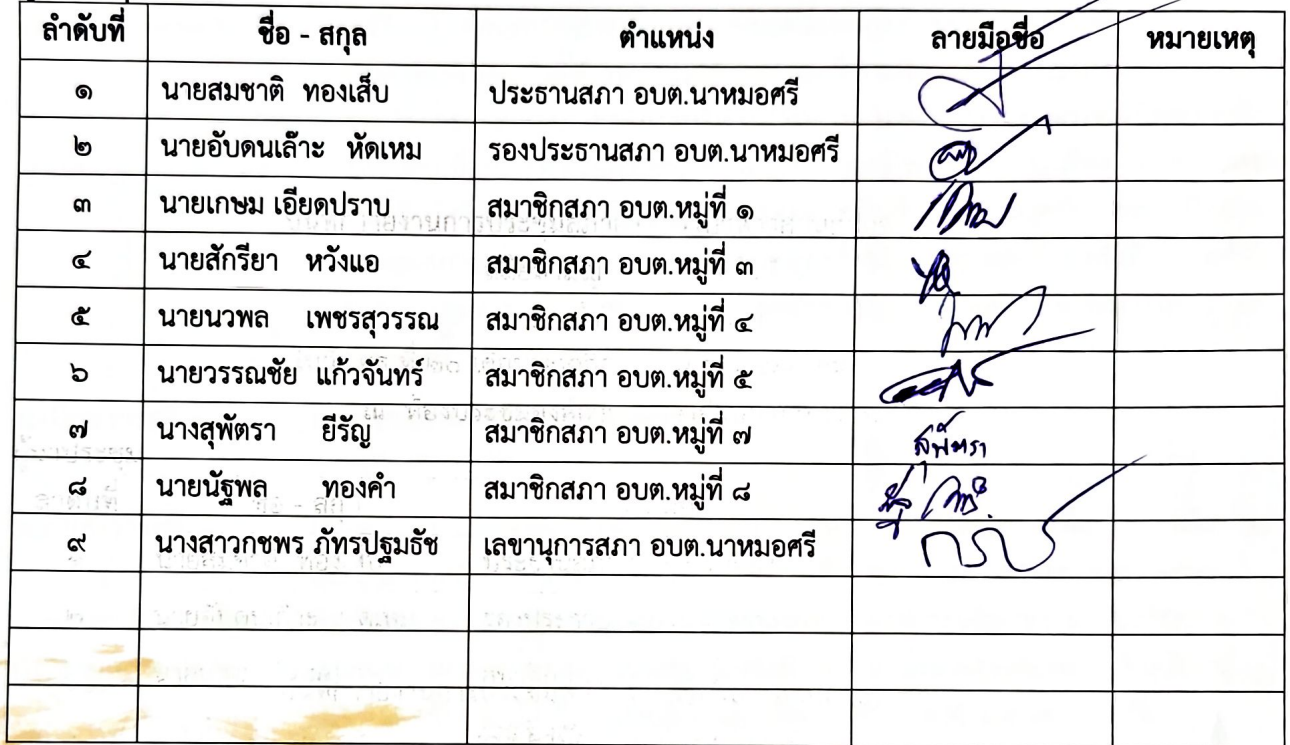 ลำดับที่ ชื่อ - สกุล ตำแหน่ง ลายมือชื่อ หมายเหตุ
๑ นายสมชาติ ทองเส็บ ประธานสภา อบต.นาหมอศรี
๒ นายอับดนเล๊าะ หัดเหม รองประธานสภา อบต.นาหมอศรี
๓ นายเกษม เอียดปราบ สมาชิกสภา อบต.หมู่ที่ ๑
๔ นายสักรียา หวังแอ สมาชิกสภา อบต.หมู่ที่ ๓
๕ นายนวพล เพชรสุวรรณ สมาชิกสภา อบต.หมู่ที่ ๔
๖ นายวรรณชัย แก้วจันทร์ สมาชิกสภา อบต.หมู่ที่ ๕
๗ นางสุพัตรา ยีรัญ สมาชิกสภา อบต.หมู่ที่ ๗ สุพัตรา
๘ นายนัฐพล ทองคำ สมาชิกสภา อบต.หมู่ที่ ๘
๙ นางสาวกชพร ภัทรปฐมธัช เลขานุการสภา อบต.นาหมอศรี